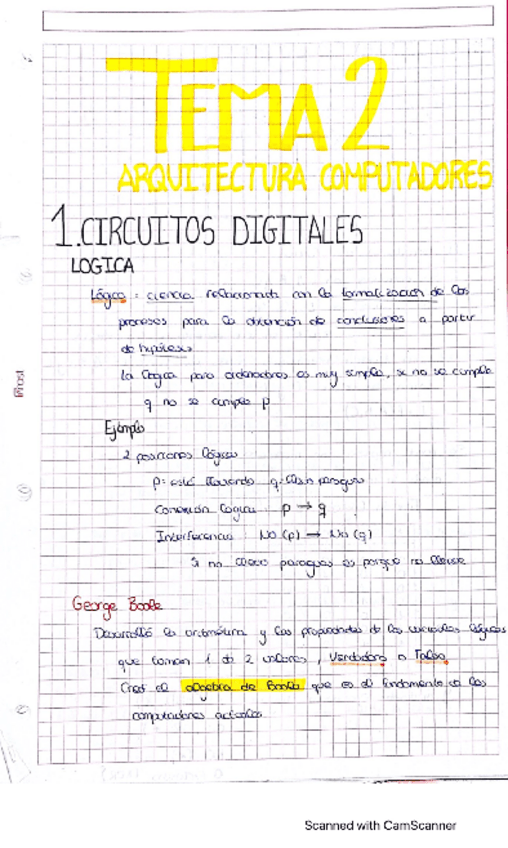 TEMA 2
ARQUITECTURA COMPUTADORES
1.CIRCUITOS DIGITALES
LOGICA
Lógica = ciencia relacionada con la formalización de los
procesos para la obtención de conclusiones a partir
de hipótesis
la lógica para ordenadores es muy simple, si no se cumple
q no se cumple p
Ejemplo
2 posiciones lógicas
p= está lloviendo q= llevo paraguas
Conexión Lógica p → q
Interferencia : No (p) → No (q)
Si no llevo paraguas es porque no llueve
George Boole
Desarrolló la aritmética y las propiedades de las variables lógicas
que toman 1 de 2 valores, Verdadero o Falso.
Creó el algebra de Boole que es el fundamento de los
computadores actuales
Scanned with CamScanner